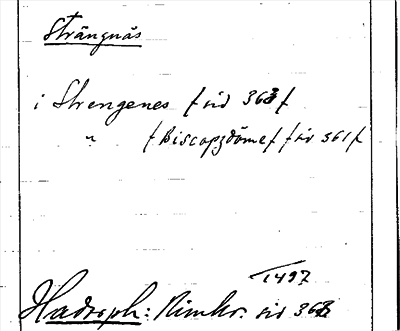 Strängnäs
i Strengenes /sid 363/
" /Biscopzdöme/ /sid 361/
1497
Hadorph: Rimkr. sid 363